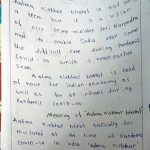 Aatma Nirbhar bharat is not only
a term but it is a
of our Prime minister Sri. Narendra
modi to enable India over come
the difficult time during Pandemic
Covid-19 which is never ever
seen.
Aatma Nirbhar bharat is need
of hour for Indian economy as
well as be all indians during
Pandemic covid-19
Meaning of Aatma Nirbhar bharat
Aatma Nirbhar bharat basically for
at the time of Pandemic
Covid-19 in India "Aatma Nirbhar